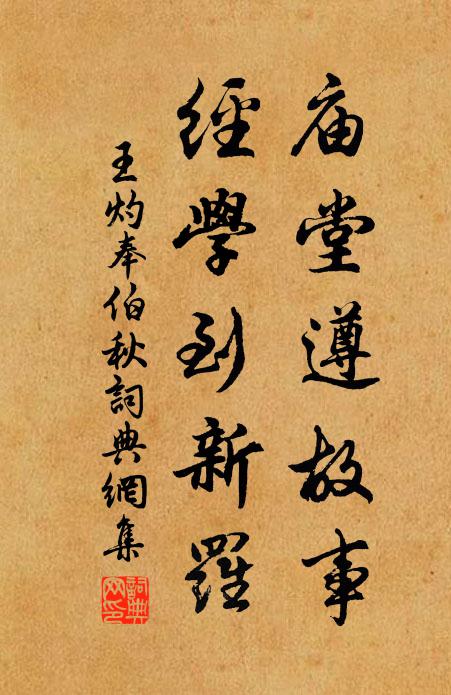 庙堂遵故事
經學到新羅
王灼奉伯秋詞典網集
詞典
网印